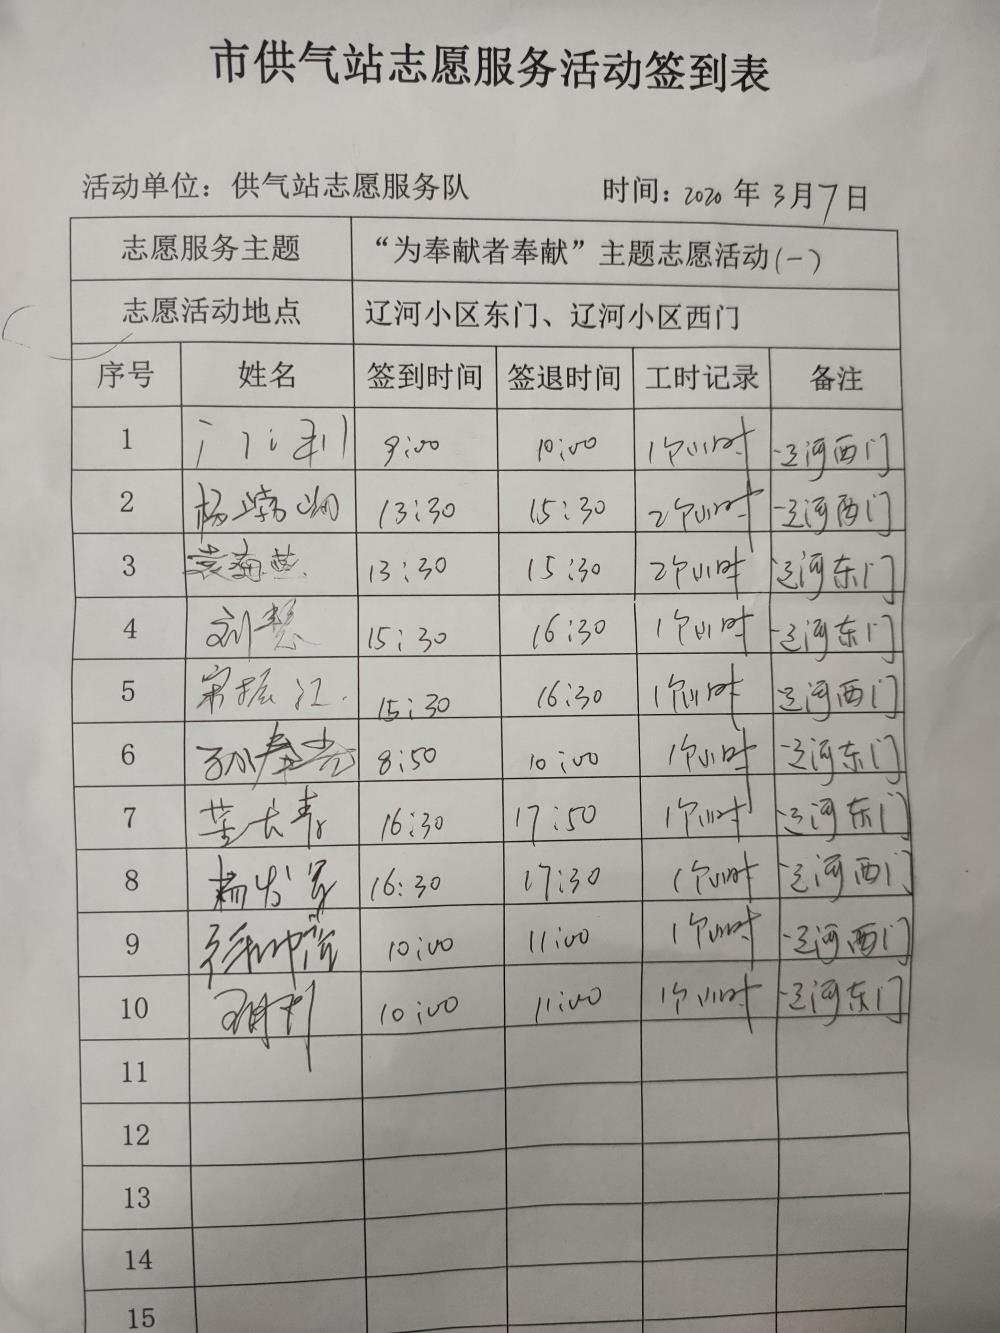 市供气站志愿服务活动签到表
活动单位：供气站志愿服务队 时间：2020 年 3 月 7 日
志愿服务主题 “为奉献者奉献”主题志愿活动(一)
志愿活动地点 辽河小区东门、辽河小区西门
序号 姓名 签到时间 签退时间 工时记录 备注
1 9:00 10:00 1个小时 辽河西门
2 杨 13:30 15:30 2个小时 辽河西门
3 袁海燕 13:30 15:30 2个小时 辽河东门
4 刘慧 15:30 16:30 1个小时 辽河东门
5 宋振江 15:30 16:30 1个小时 辽河西门
6 孙 8:50 10:00 1个小时 辽河东门
7 董长青 16:30 17:50 1个小时 辽河东门
8 杨 16:30 17:30 1个小时 辽河西门
9 徐 10:00 11:00 1个小时 辽河西门
10 10:00 11:00 1个小时 辽河东门
11
12
13
14
15